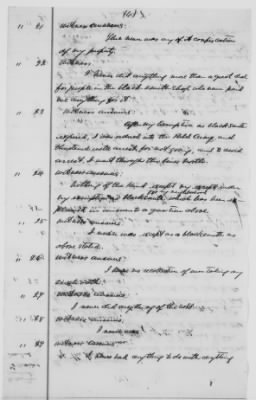 " 21 witness answers:
There never was any of it confiscation
of my property.
" 22 witness:
I never did anything more than a great deal
for people in the black smith shop who never paid
me anything for it
" 23 witness answers:
After my exemption as blacksmith
expired, I was ordered into the Rebel Army, and
threatened with arrest for not going, and to avoid
arrest, I went through the lines North.
" 24 witness answers:
Nothing of the kind except my
my exemption as Blacksmith which has been
in answer to question above.
" 25 witness answers:
I never was except as a blacksmith as
above stated.
" 26 witness answers:
I have no recollection of ever taking any
" 27 witness answers:
I never did any thing of the sort.
" 28 witness answers:
I never was
" 29 witness answers:
I never had any thing to do with any thing